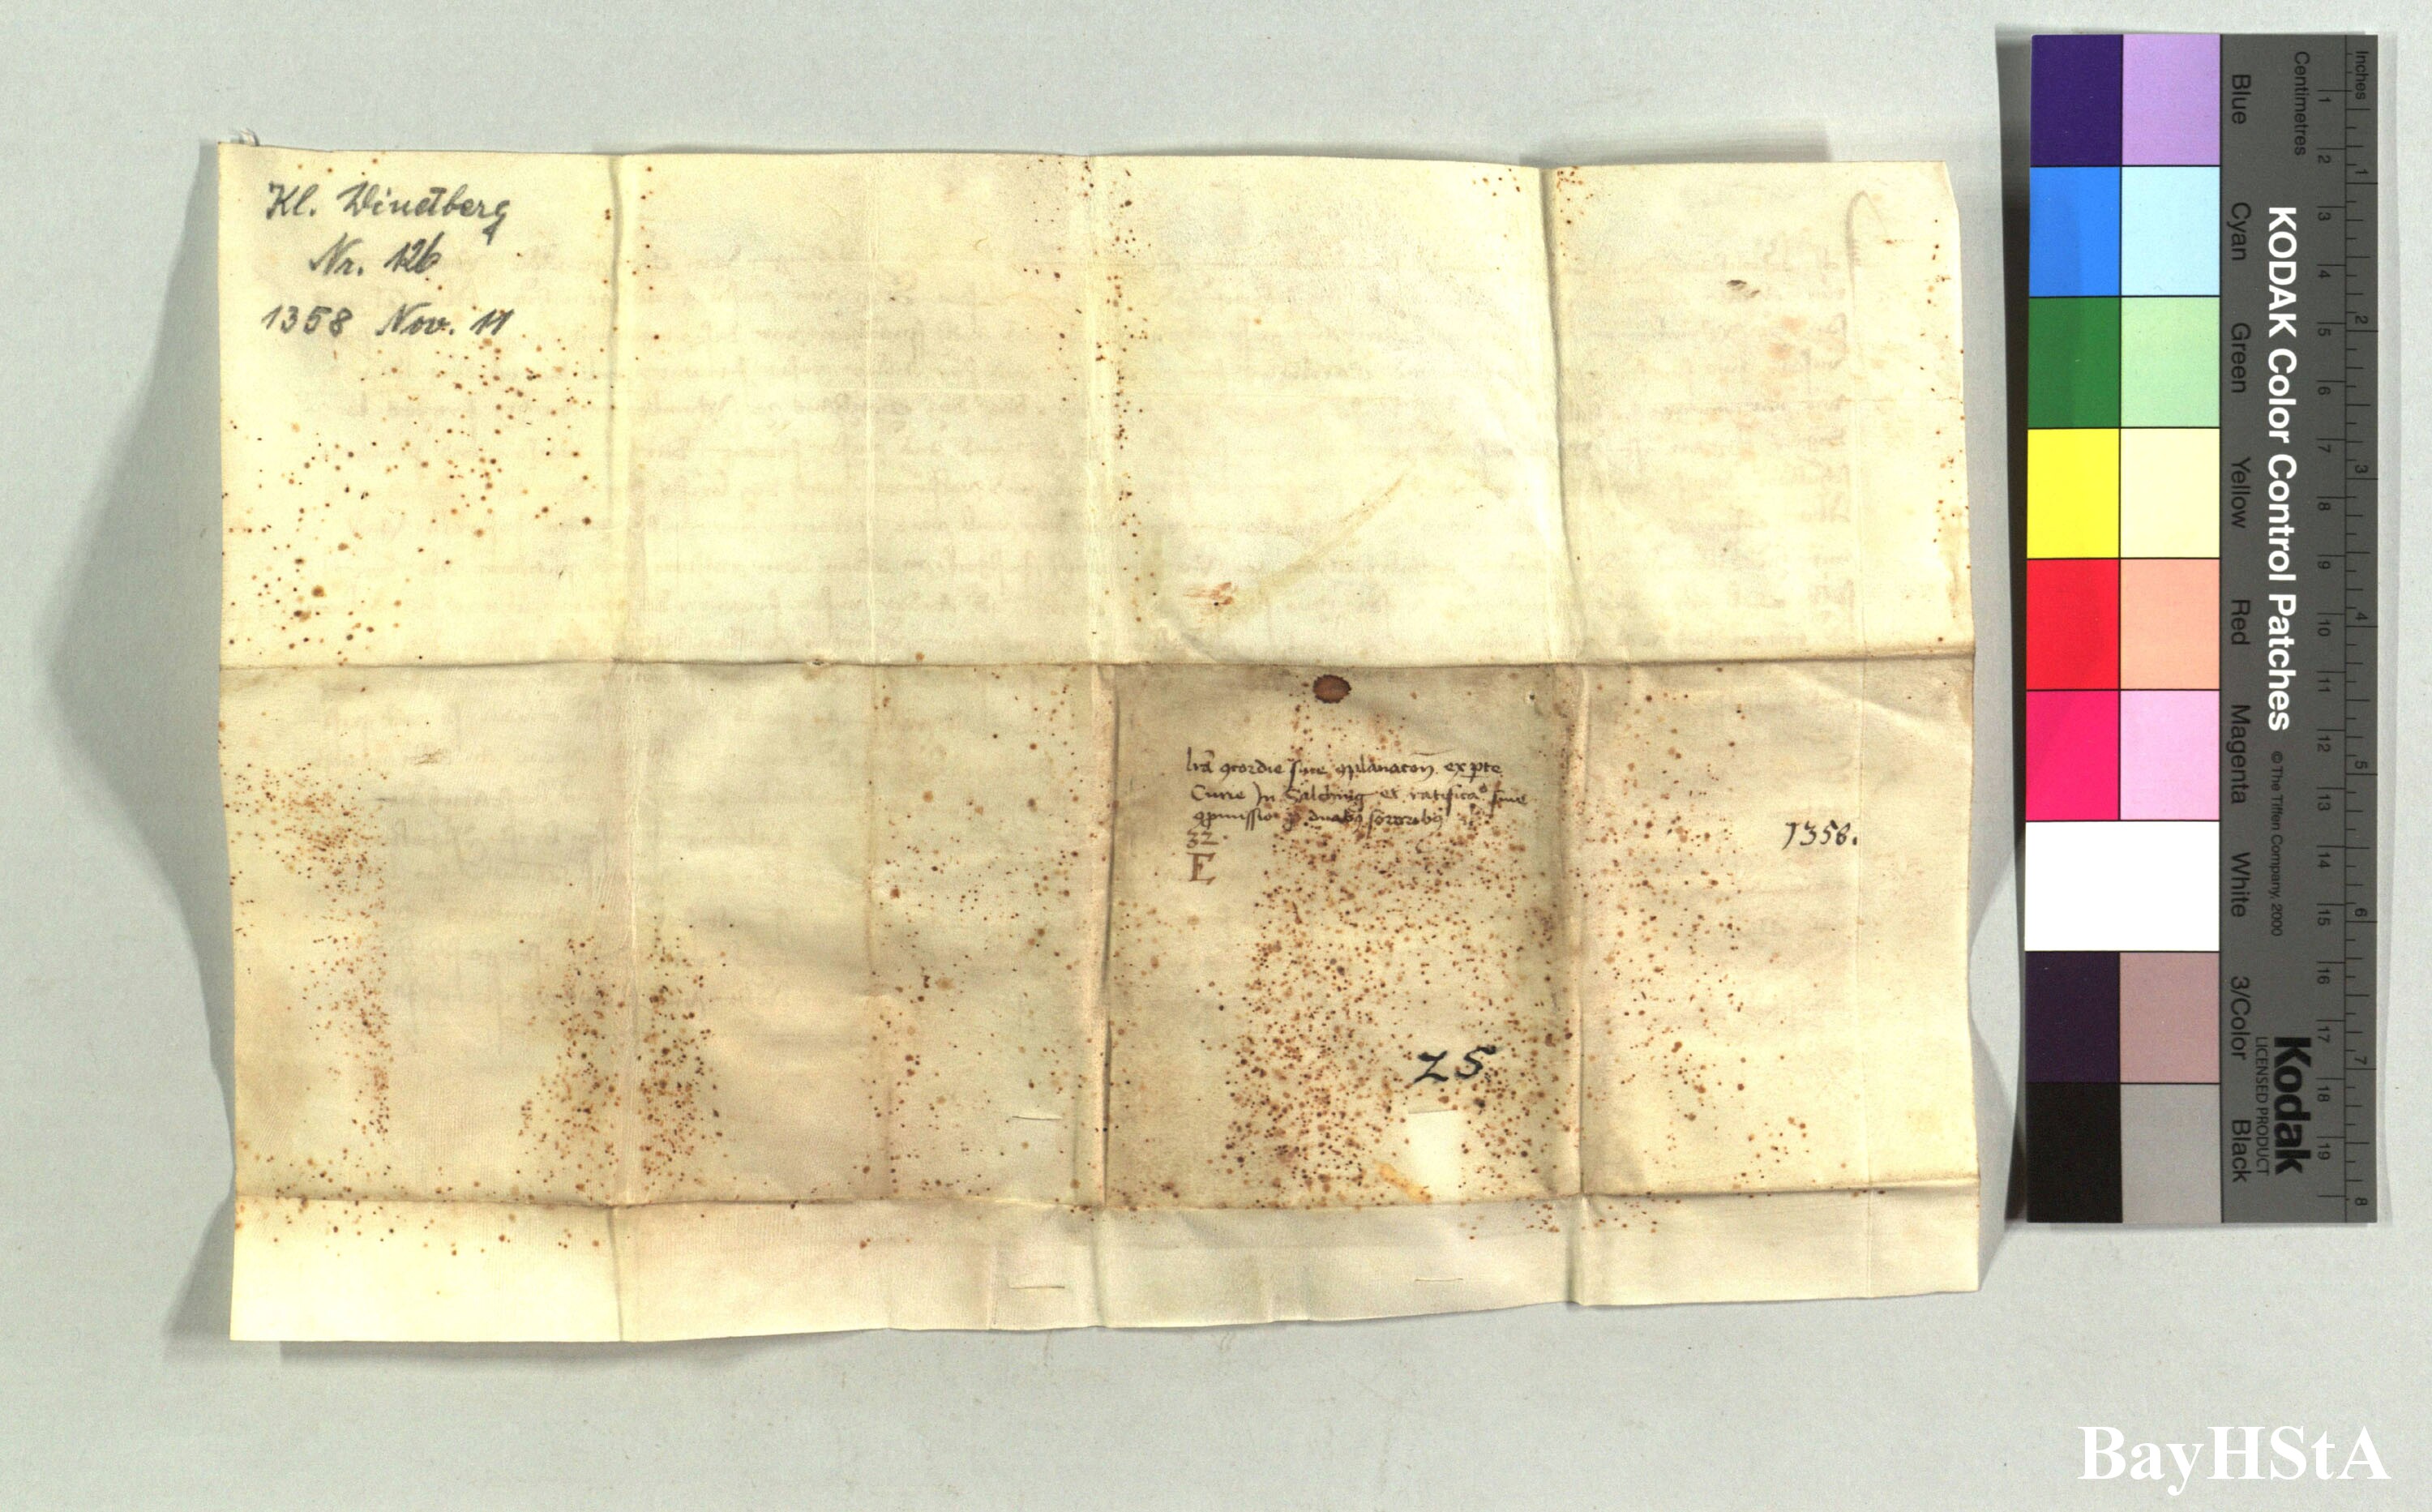 Kl. Windberg
Nr. 126
1358 Nov. 11
lrã ꝯcordie siue ꝯplanacoñ ex pte
Curie In Salching et ratificaº siue
ꝯpmissio duabꝰ sororibꝰ
32
E
1358.
25
Inches
Centimetres
1 2 3 4 5 6 7 8 9 10 11 12 13 14 15 16 17 18 19
1 2 3 4 5 6 7 8
Blue Cyan Green Yellow Red Magenta White 3/Color Black
KODAK Color Control Patches © The Tiffen Company, 2000
Kodak
LICENSED PRODUCT
BayHStA